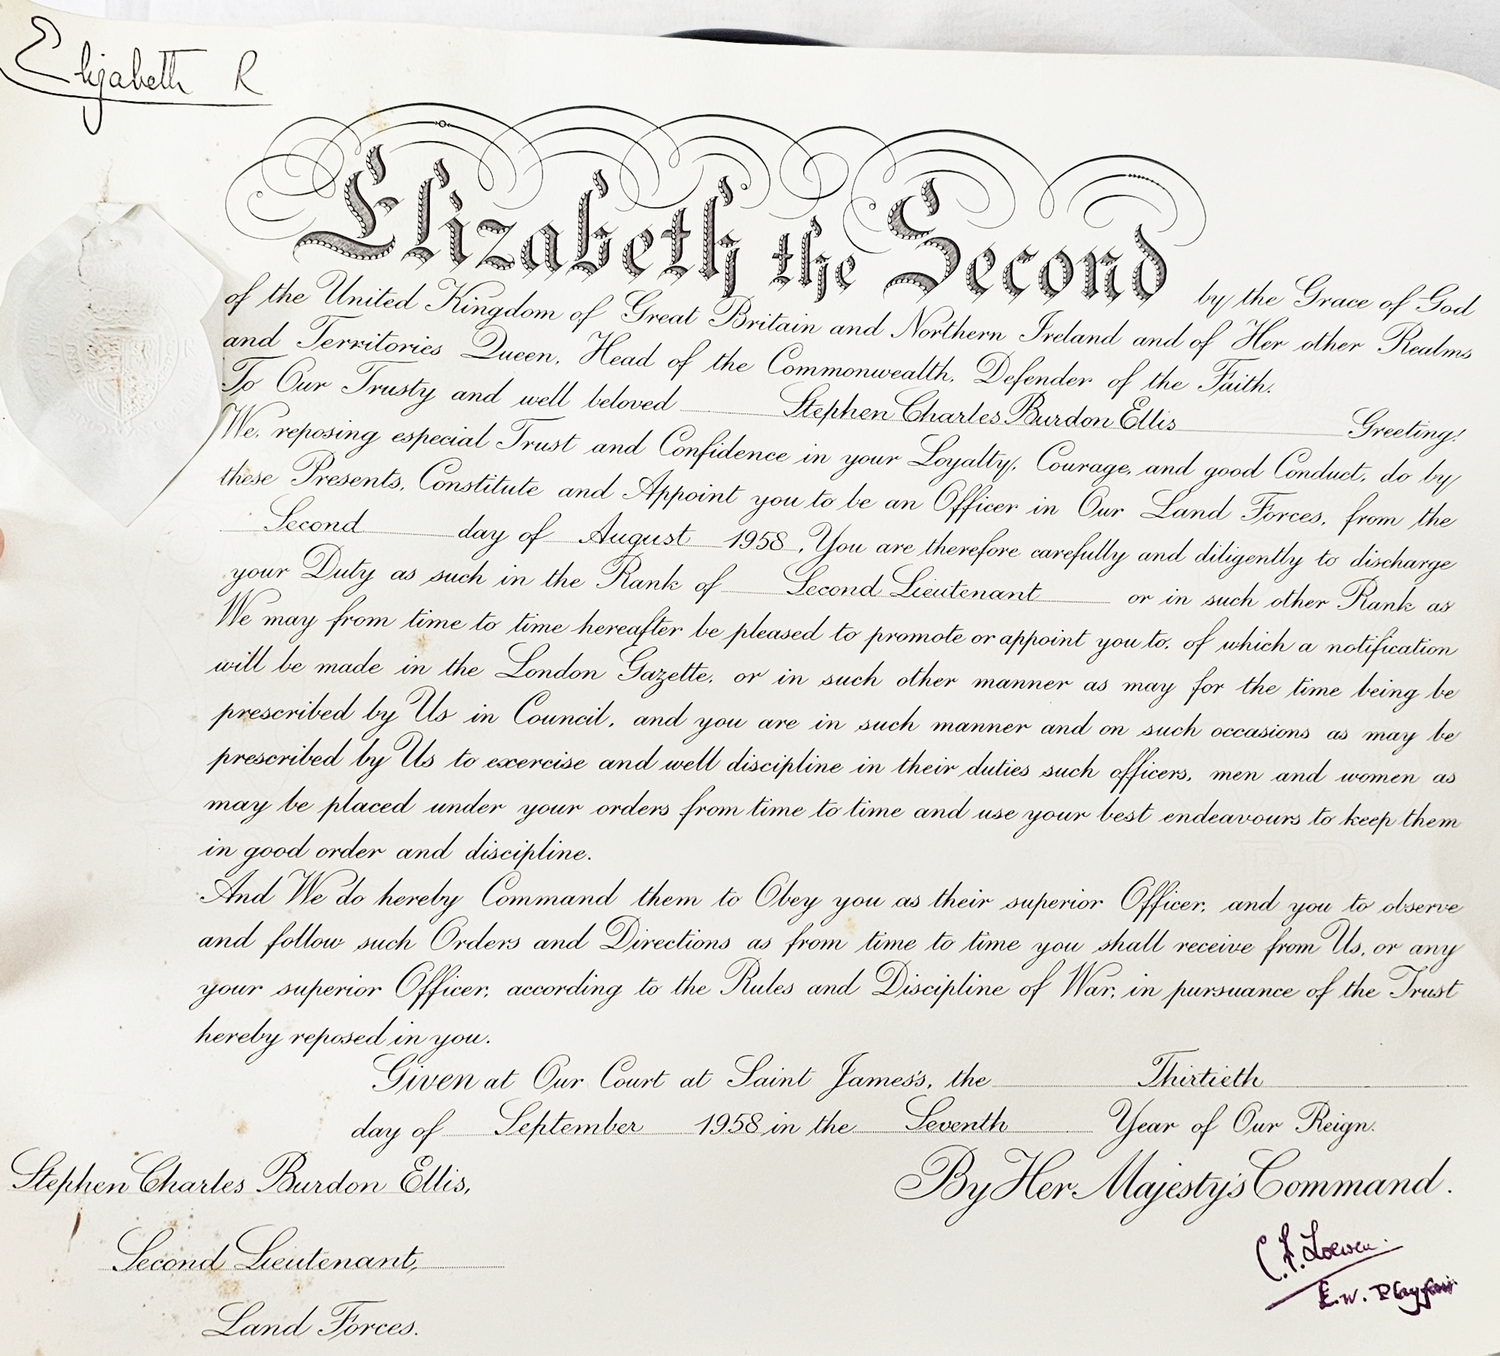 Elizabeth R
Elizabeth the Second
by the Grace of God
of the United Kingdom of Great Britain and Northern Ireland and of Her other Realms
and Territories Queen, Head of the Commonwealth, Defender of the Faith.
To Our Trusty and well beloved Stephen Charles Burdon Ellis Greeting!
We, reposing especial Trust and Confidence in your Loyalty, Courage, and good Conduct, do by
these Presents, Constitute and Appoint you to be an Officer in Our Land Forces, from the
Second day of August 1958. You are therefore carefully and diligently to discharge
your Duty as such in the Rank of Second Lieutenant or in such other Rank as
We may from time to time hereafter be pleased to promote or appoint you to, of which a notification
will be made in the London Gazette, or in such other manner as may for the time being be
prescribed by Us in Council, and you are in such manner and on such occasions as may be
prescribed by Us to exercise and well discipline in their duties such officers, men and women as
may be placed under your orders from time to time and use your best endeavours to keep them
in good order and discipline.
And We do hereby Command them to Obey you as their superior Officer, and you to observe
and follow such Orders and Directions as from time to time you shall receive from Us, or any
your superior Officer, according to the Rules and Discipline of War, in pursuance of the Trust
hereby reposed in you.
Given at Our Court at Saint James's, the Thirtieth
day of September 1958 in the Seventh Year of Our Reign.
By Her Majesty's Command.
Stephen Charles Burdon Ellis,
Second Lieutenant,
Land Forces.
C.F. Loewen.
E.W. Playfair